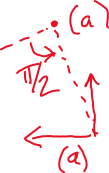 (a)
π/2
(a)